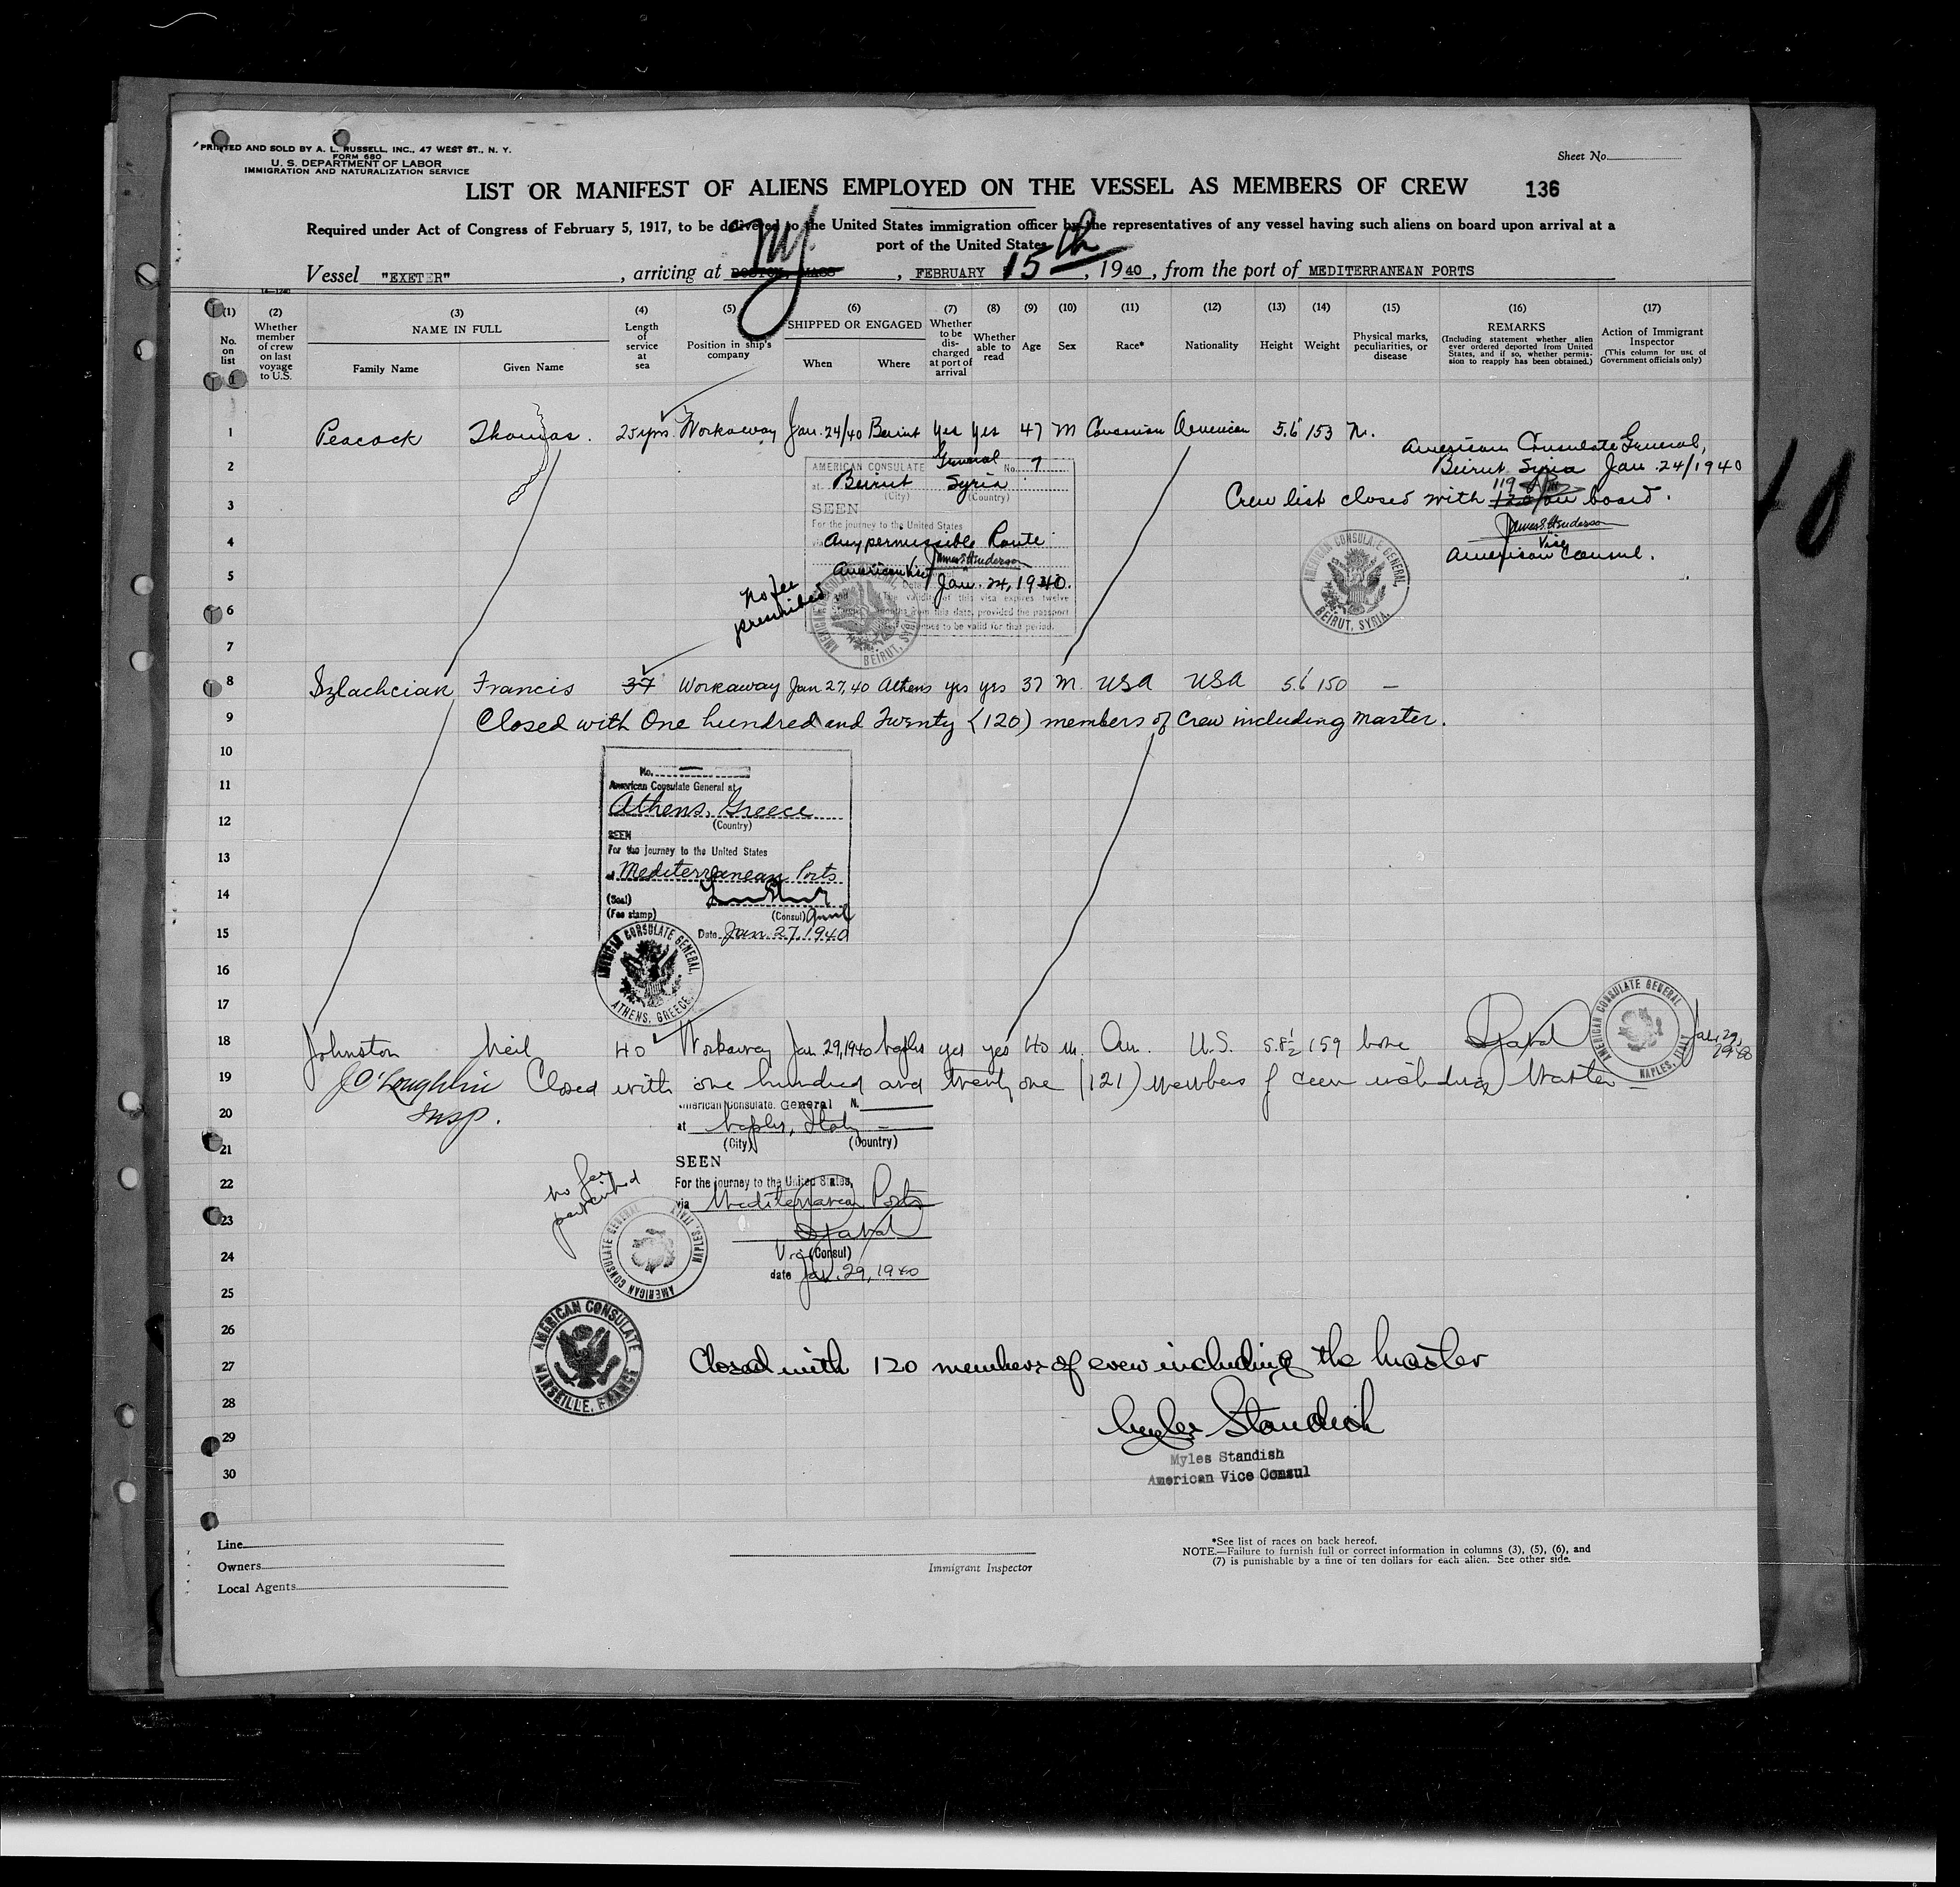 PRINTED AND SOLD BY A. L. RUSSELL, INC., 47 WEST ST., N. Y.
FORM 680
U. S. DEPARTMENT OF LABOR
IMMIGRATION AND NATURALIZATION SERVICE
Sheet No.
LIST OR MANIFEST OF ALIENS EMPLOYED ON THE VESSEL AS MEMBERS OF CREW 136
Required under Act of Congress of February 5, 1917, to be delivered to the United States immigration officer by the representatives of any vessel having such aliens on board upon arrival at a
port of the United States
Vessel "EXETER", arriving at BOSTON, MASS NY, FEBRUARY 15th, 1940, from the port of MEDITERRANEAN PORTS
(1) No. on list
(2) Whether member of crew on last voyage to U.S.
(3) NAME IN FULL Family Name Given Name
(4) Length of service at sea
(5) Position in ship's company
(6) SHIPPED OR ENGAGED When Where
(7) Whether to be discharged at port of arrival
(8) Whether able to read
(9) Age
(10) Sex
(11) Race*
(12) Nationality
(13) Height
(14) Weight
(15) Physical marks, peculiarities, or disease
(16) REMARKS (Including statement whether alien ever ordered deported from United States, and if so, whether permission to reapply has been obtained.)
(17) Action of Immigrant Inspector (This column for use of Government officials only)
1 Peacock Thomas. 25 yrs. Workaway Jan. 24/40 Beirut yes yes 47 M Caucasian American 5.6 153 N.
American Consulate General,
Beirut Syria Jan. 24/1940
2 AMERICAN CONSULATE General No. 7
at Beirut Syria
(City) (Country)
3 SEEN
Crew list closed with 119 120 on board.
For the journey to the United States
4 via Any permissible Route
James S. Henderson
American Vice Consul.
James S. Henderson
5 American Vice
Date Jan. 24, 1940.
No fee prescribed
6 The validity of this visa expires twelve
months from this date, provided the passport
continues to be valid for that period.
AMERICAN CONSULATE GENERAL, BEIRUT, SYRIA.
AMERICAN CONSULATE GENERAL, BEIRUT, SYRIA.
7
8 Szlachciak Francis 37 Workaway Jan 27, 40 Athens yes yes 37 M. USA USA 5.6 150 —
9 Closed with One hundred and Twenty (120) members of Crew including Master.
10 No.
11 American Consulate General at
Athens, Greece
12 (Country)
SEEN
13 For the journey to the United States
at Mediterranean Ports
14 (Seal)
(Fee stamp) (Consul)
15 Date Jan. 27, 1940
16 AMERICAN CONSULATE GENERAL, ATHENS, GREECE.
17
18 Johnston Neil 40 Workaway Jan. 29, 1940 Naples yes yes 40 M. Am. U.S. 5.8½ 159 none
AMERICAN CONSULATE GENERAL NAPLES, ITALY
Jan. 29, 1940
19 J O'Loughlin Closed with one hundred and twenty one (121) members of crew including Master
Insp.
20 American Consulate General N.
21 at Naples, Italy
(City) (Country)
SEEN
22 For the journey to the United States,
No fee prescribed
via Mediterranean Ports
23
24 Vice (Consul)
date Jan. 29, 1940
AMERICAN CONSULATE GENERAL NAPLES, ITALY
25
26 AMERICAN CONSULATE MARSEILLE, FRANCE
27 Closed with 120 members of crew including the master
28 Myles Standish
29 Myles Standish
30 American Vice Consul
Line
Owners
Local Agents
Immigrant Inspector
*See list of races on back hereof.
NOTE.—Failure to furnish full or correct information in columns (3), (5), (6), and
(7) is punishable by a fine of ten dollars for each alien. See other side.